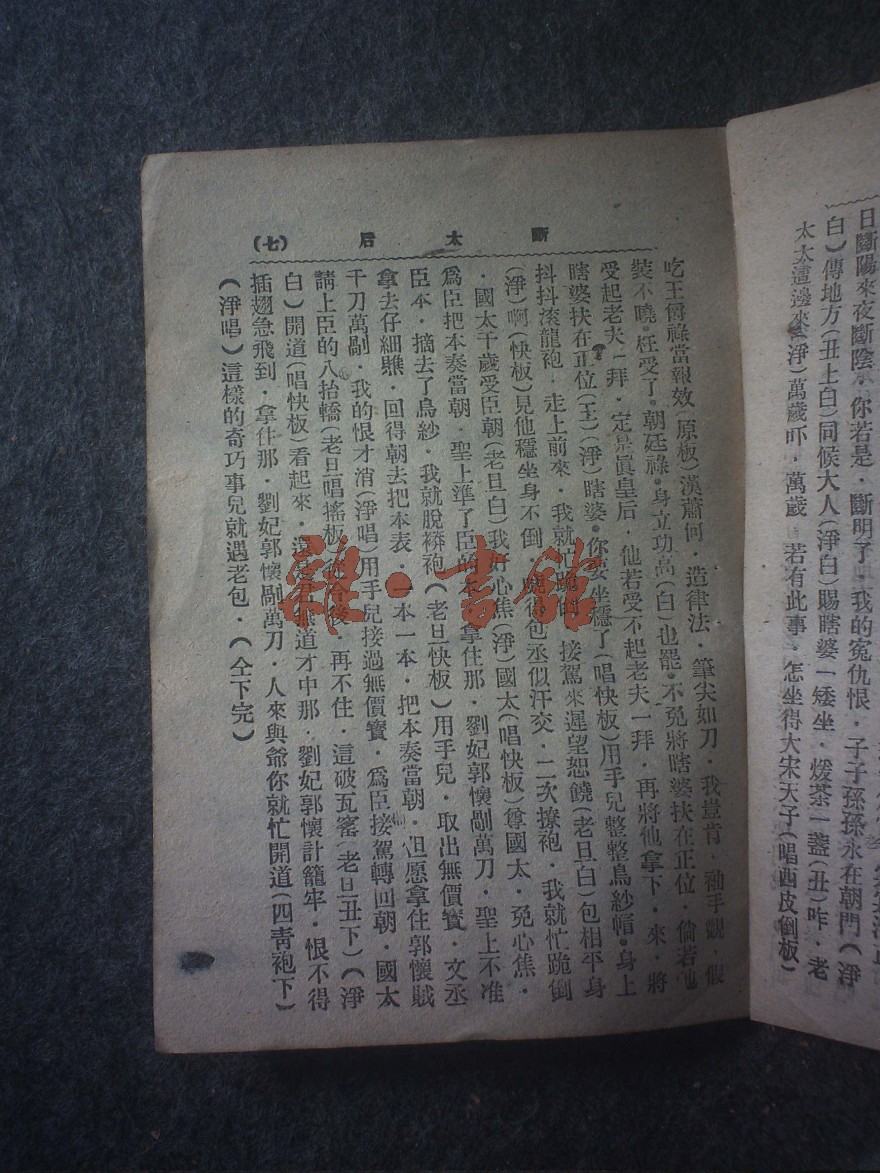 日斷陽來夜斷陰 你若是·斷明了 我的冤仇恨·子子孫孫永在朝門(淨
白)傳地方(丑上白)伺候大人(淨白)賜瞎婆一矮坐·煖茶一盞(丑)咋·老
太太這邊來(淨)萬歲吓·萬歲 若有此事·怎坐得大宋天子(唱西皮倒板)
斷太后 (七)
吃王爵祿當報效(原板)漢蕭何·造律法·筆尖如刀·我豈肯·袖手觀·假
裝不曉·枉受了·朝廷祿·身立功高(白)也罷·不免將瞎婆扶在正位·倘若他
受起老夫一拜·定是眞皇后·他若受不起老夫一拜·再將他拿下·來·將
瞎婆扶在正位(王)(淨)瞎婆·你要坐穩了(唱快板)用手兒整整烏紗帽·身上
抖抖滚龍袍·走上前來·我就忙跪 接駕來遲望恕饒(老旦白)包相平身
(淨)啊(快板)見他穩坐身不倒 得包丞似汗交·二次撩袍·我就忙跪倒
·國太千歲受臣朝(老旦白)我 心焦(淨)國太(唱快板)尊國太·免心焦·
爲臣把本奏當朝·聖上準了臣 拿住那·劉妃郭懷剮萬刀·聖上不准
臣本·摘去了烏紗·我就脫蟒袍(老旦快板)用手兒·取出無價寶·文丞
拿去仔細瞧·回得朝去把本表·一本一本·把本奏當朝·但愿拿住郭懷賊
千刀萬剮·我的恨才消(淨唱)用手兒接過無價寶·爲臣接駕轉回朝·國太
請上臣的八抬轎(老旦唱搖板) 今後·再不住·這破瓦窰(老旦丑下)(淨
白)開道(唱快板)看起來· 無道才中那·劉妃郭懷計籠牢·恨不得
插翅急飛到·拿住那·劉妃郭懷剮萬刀·人來與爺你就忙開道(四靑袍下)
(淨唱)這樣的奇巧事兒就遇老包·(全下完)
雜·書館